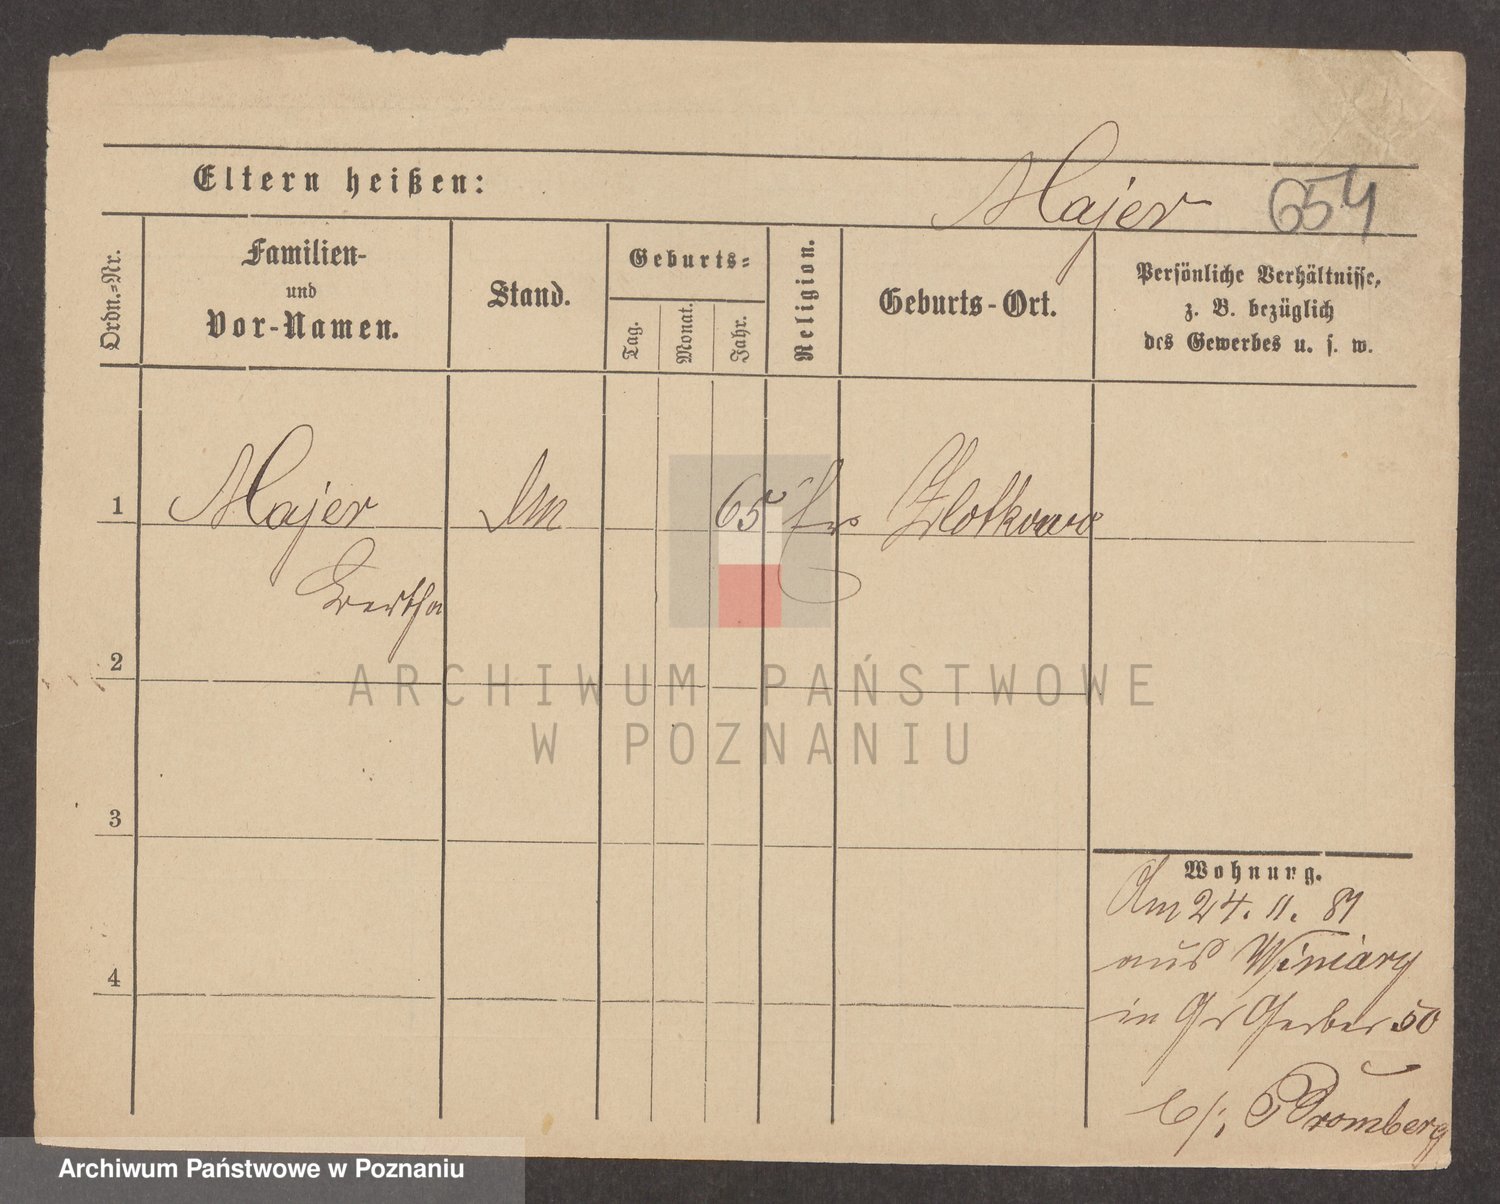 Eltern heißen: Majer 654
Ordn.=Nr.
Familien-
und
Vor-Namen.
Stand.
Geburts=
Tag.
Monat.
Jahr.
Religion.
Geburts-Ort.
Persönliche Verhältnisse,
z. B. bezüglich
des Gewerbes u. s. w.
1 Majer 65 Zlotkowo
Bertha
2
3
4
Wohnung.
Am 24. 11. 81
aus Winiary
in Gr Gerber 50
b/: Bromberg
ARCHIWUM PAŃSTWOWE
W POZNANIU
Archiwum Państwowe w Poznaniu